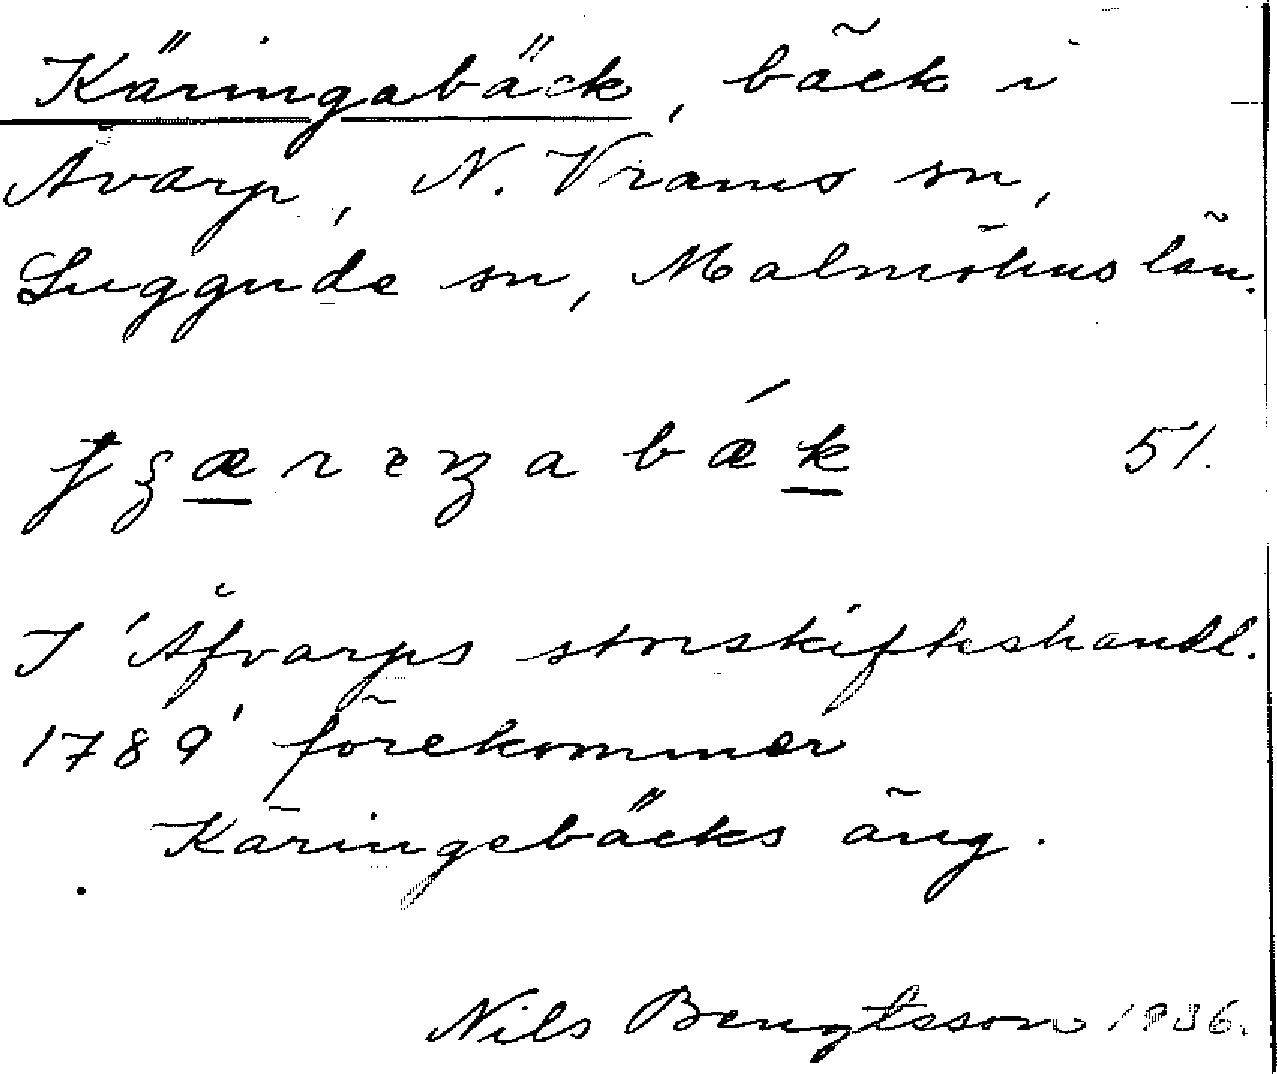 Käringabäck, bäck i
Åvarp, N. Vrams sn,
Luggude sn, Malmöhus län.
51.
I 'Åfvarps storskifteshandl.
1789' förekommer
Käringebäcks äng.
Nils Bengtsson 1936.